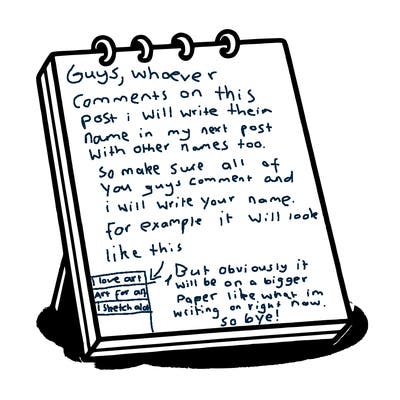 Guys, whoever
comments on this
post i will write their
name in my next post
with other names too.
So make sure all of
you guys comment and
i will write your name.
for example it will look
like this
I love art
Art for all
But obviously it
will be on a bigger
paper like what im
writing on right now.
So bye!